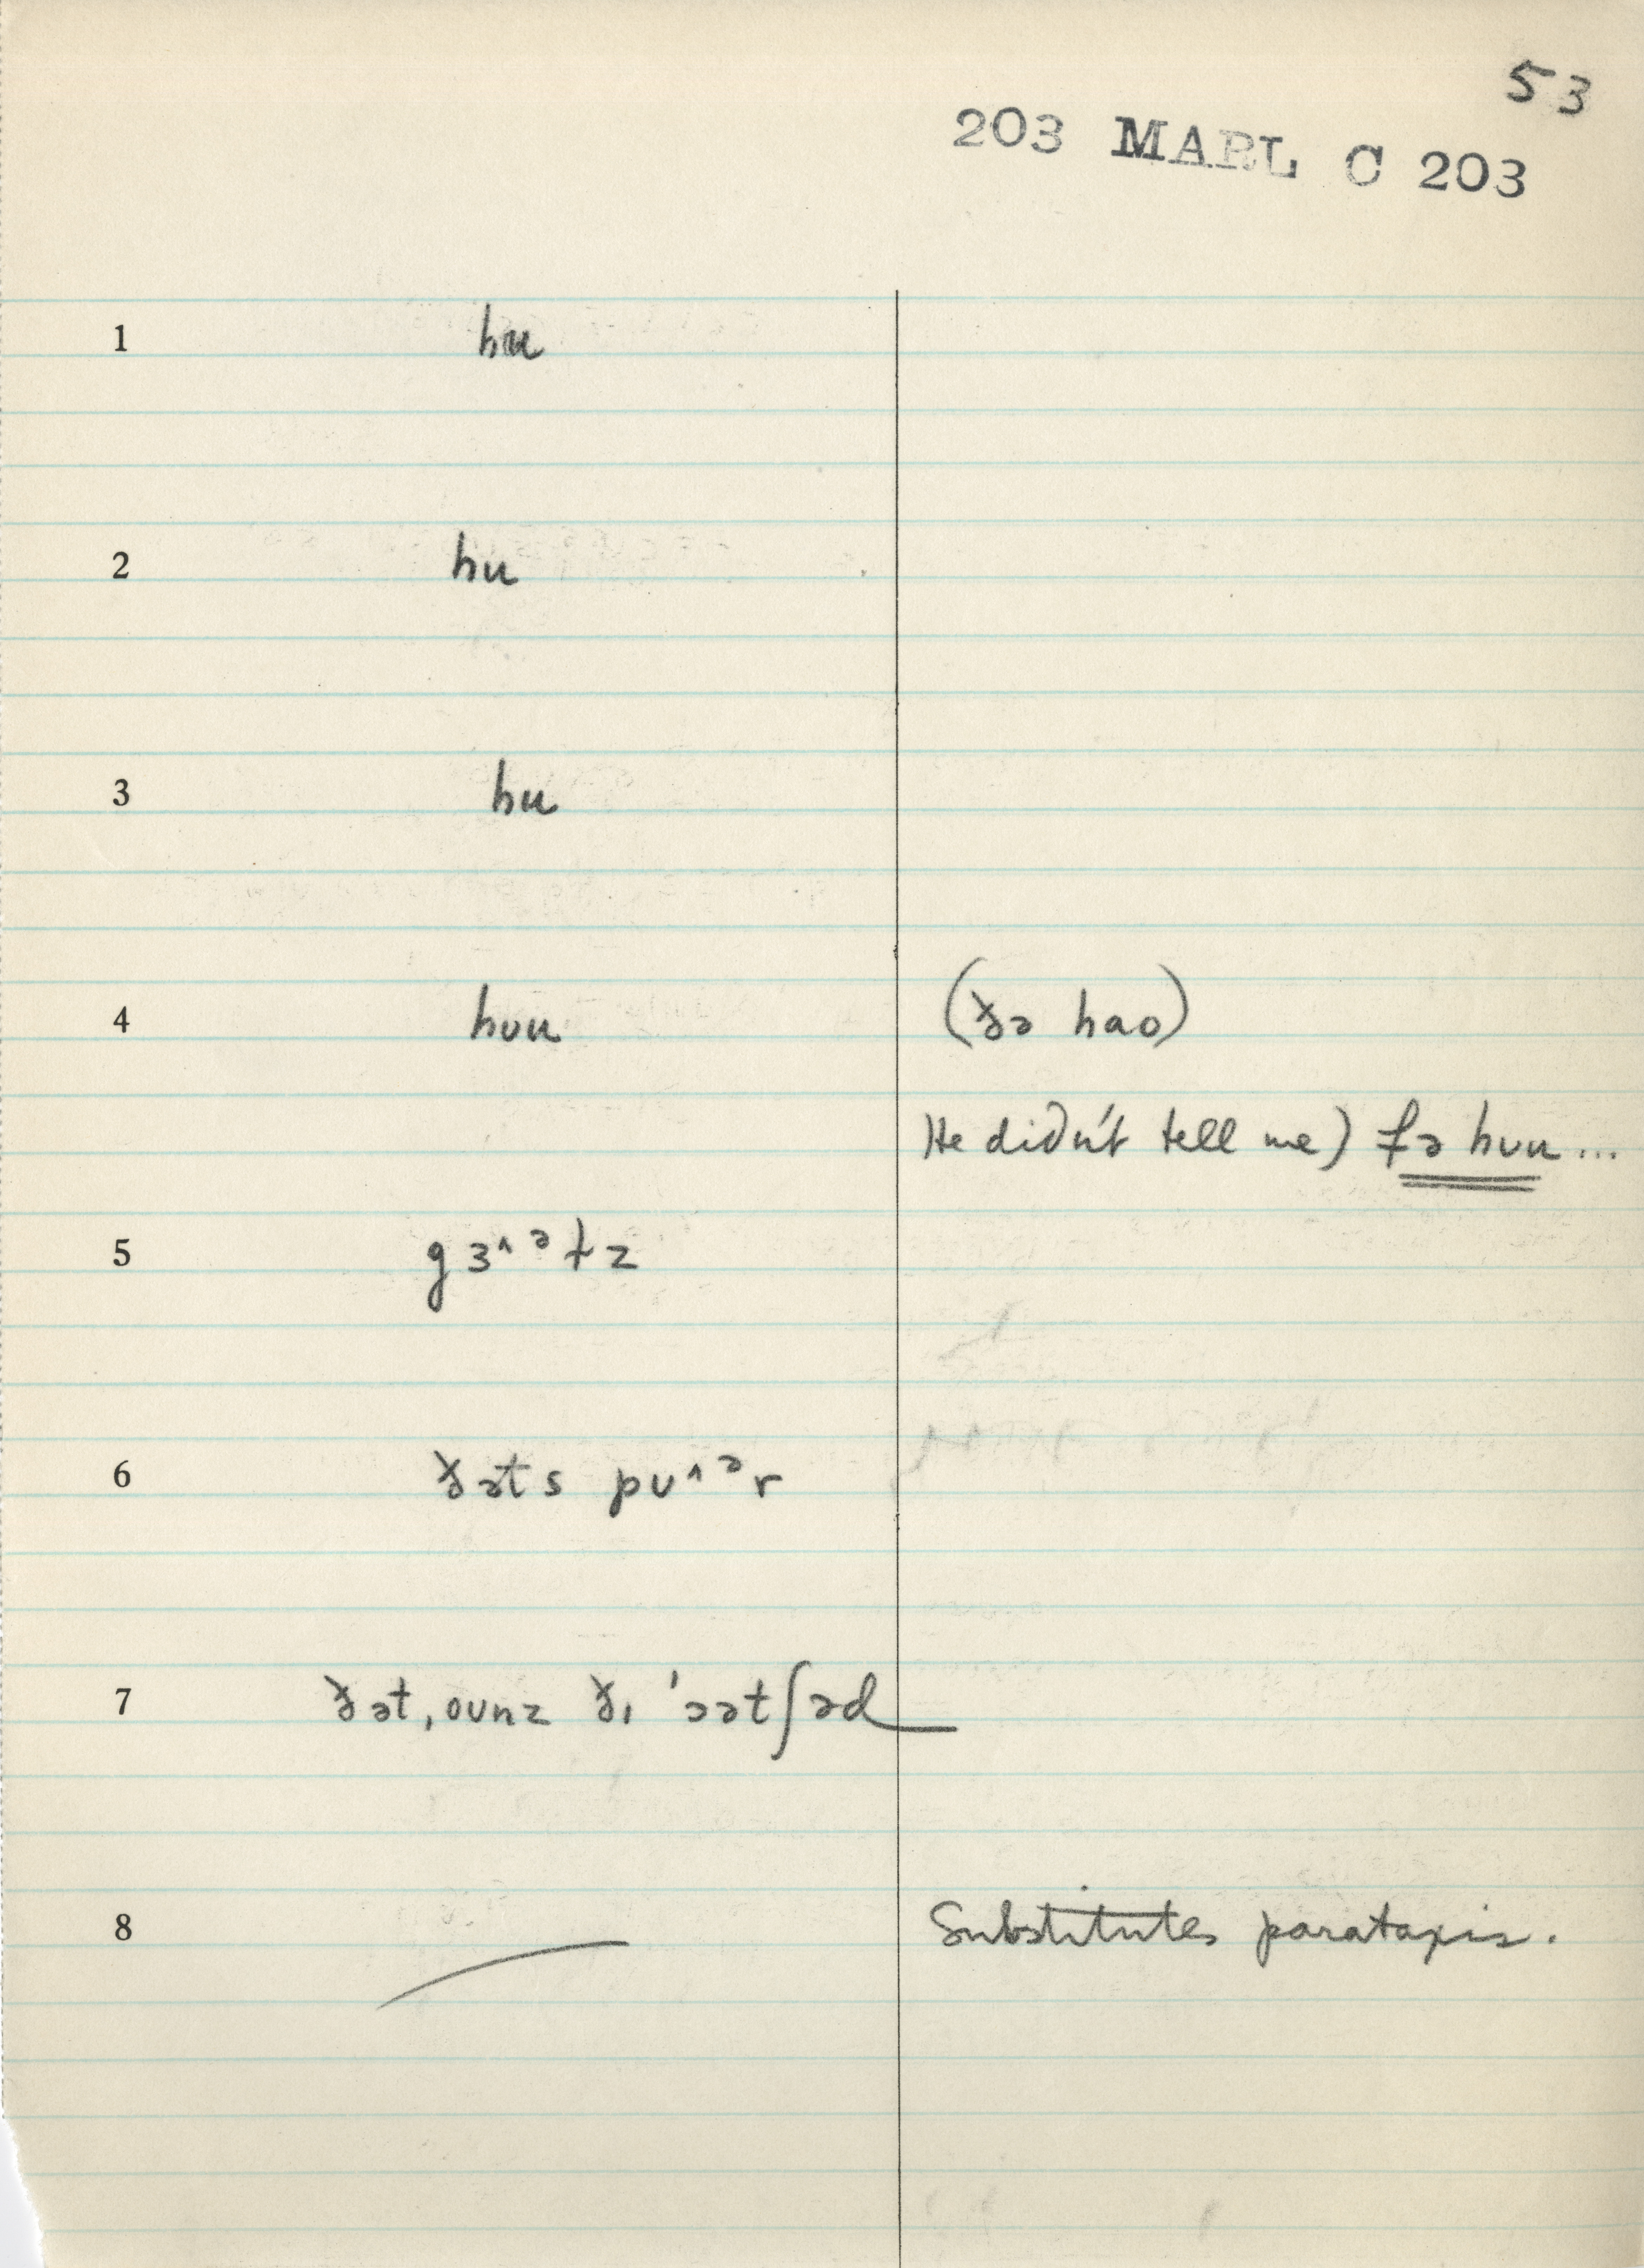 53
203 MARL C 203
1 hu
2 hu
3 hu
4 huu (ðə hao)
He didn't tell me) fə huu ...
5 gɜ^ᵊɫz
6 ðəts pʊ^ᵊr
7 ðət ˌoʊnz ðɪ ˈɔətʃəd
8 Substitutes parataxis.